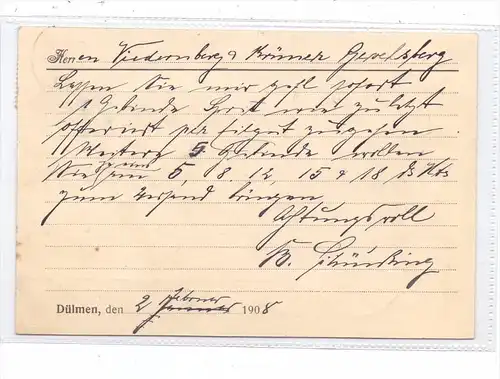 Herren Niedernberg & Krüner Gevelsberg
Lassen Sie mir gefl sofort
1 Gebinde Sprit wie zuletzt
offeriert per Eilgut zugehen
Weitere 5 Gebinde wollen
Sie zum 5, 8. 12, 15 & 18 ds Mts
zum Versand bringen
Achtungsvoll
B. Schünking
Dülmen, den 2 Februar 1908